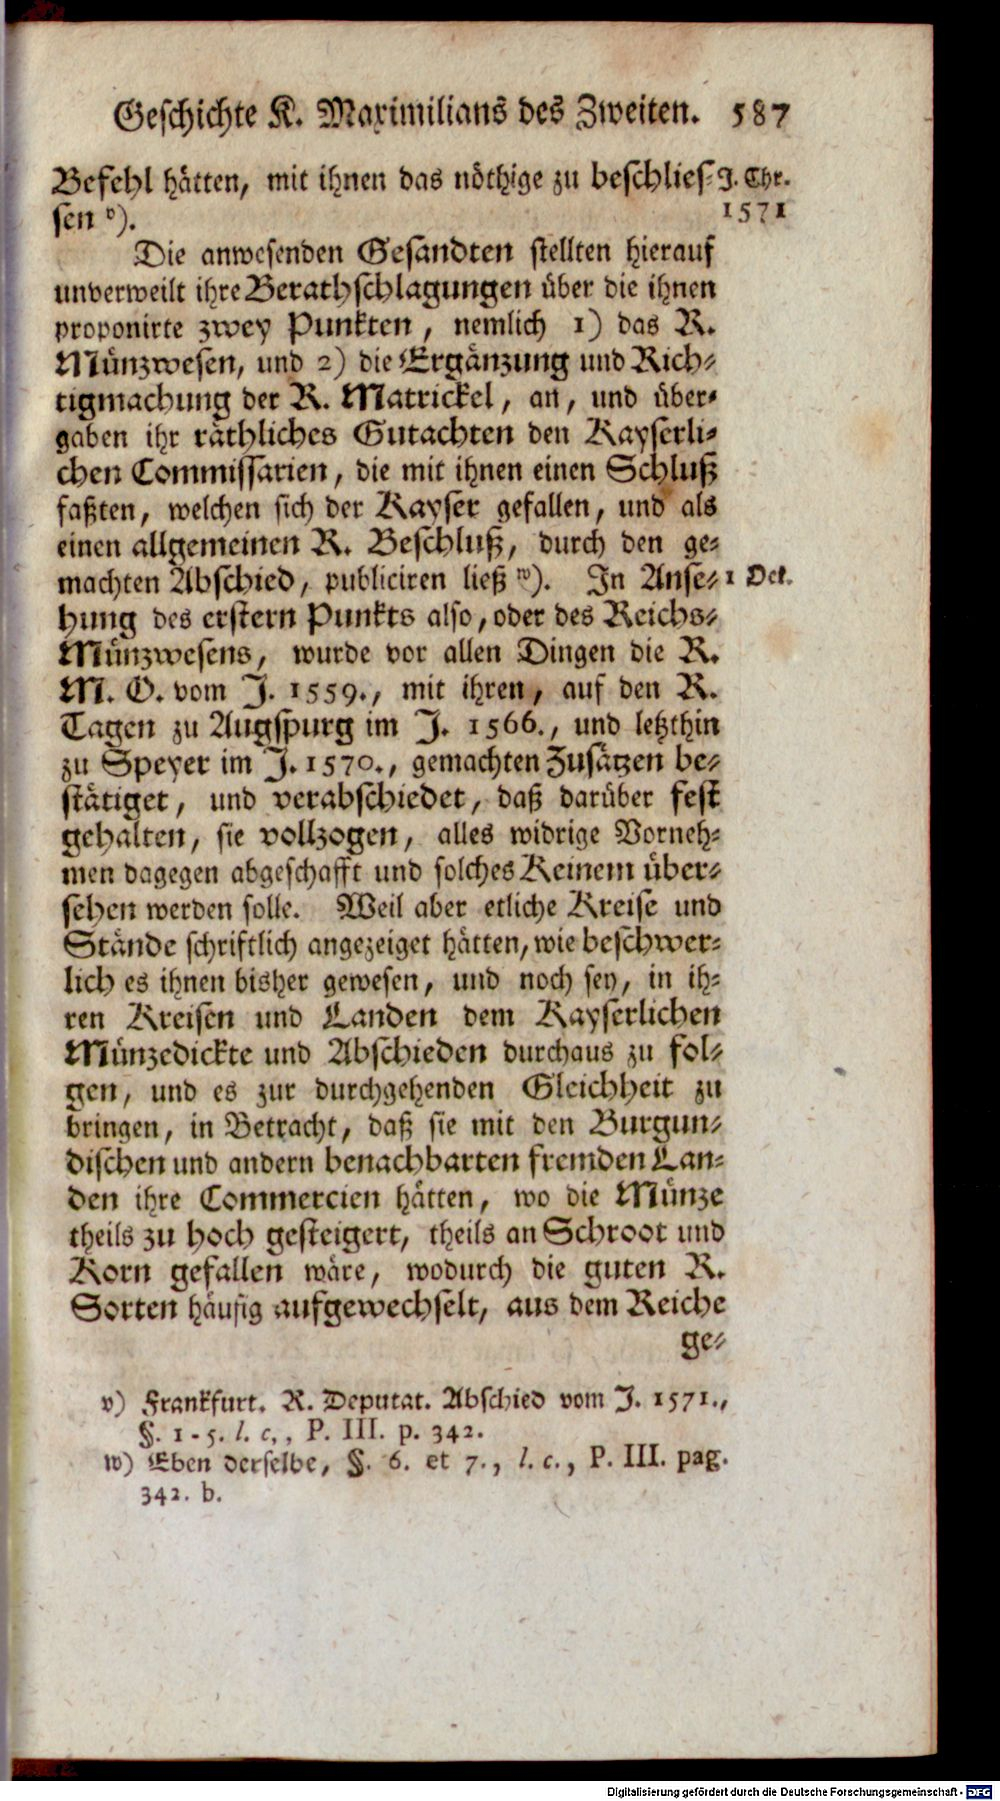 Geschichte K. Maximilians des Zweiten. 587
Befehl hätten, mit ihnen das nöthige zu beschlies- J. Chr.
sen v). 1571
Die anwesenden Gesandten stellten hierauf
unverweilt ihre Berathschlagungen über die ihnen
proponirte zwey Punkten, nemlich 1) das R.
Münzwesen, und 2) die Ergänzung und Rich-
tigmachung der R. Matrickel, an, und über-
gaben ihr räthliches Gutachten den Kayserli-
chen Commissarien, die mit ihnen einen Schluß
faßten, welchen sich der Kayser gefallen, und als
einen allgemeinen R. Beschluß, durch den ge-
machten Abschied, publiciren ließ w). In Anse- 1 Oct.
hung des erstern Punkts also, oder des Reichs-
Münzwesens, wurde vor allen Dingen die R.
M. O. vom J. 1559., mit ihren, auf den R.
Tagen zu Augspurg im J. 1566., und letzthin
zu Speyer im J. 1570., gemachten Zusätzen be-
stätiget, und verabschiedet, daß darüber fest
gehalten, sie vollzogen, alles widrige Vorneh-
men dagegen abgeschafft und solches Keinem über-
sehen werden solle. Weil aber etliche Kreise und
Stände schriftlich angezeiget hätten, wie beschwer-
lich es ihnen bisher gewesen, und noch sey, in ih-
ren Kreisen und Landen dem Kayserlichen
Münzedickte und Abschieden durchaus zu fol-
gen, und es zur durchgehenden Gleichheit zu
bringen, in Betracht, daß sie mit den Burgun-
dischen und andern benachbarten fremden Lan-
den ihre Commercien hätten, wo die Münze
theils zu hoch gesteigert, theils an Schroot und
Korn gefallen wäre, wodurch die guten R.
Sorten häufig aufgewechselt, aus dem Reiche
ge-
v) Frankfurt. R. Deputat. Abschied vom J. 1571.,
§. 1-5. l. c., P. III. p. 342.
w) Eben derselbe, §. 6. et 7., l. c., P. III. pag.
342. b.
Digitalisierung gefördert durch die Deutsche Forschungsgemeinschaft - DFG